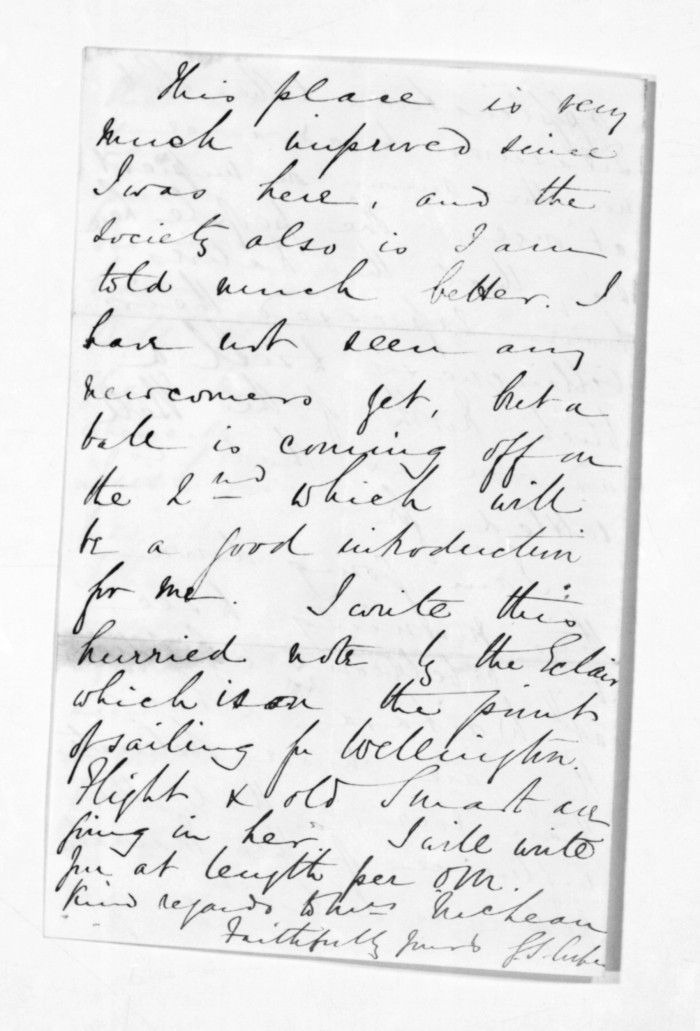 This place is very
much improved since
I was here, and the
society also is I am
told much better. I
have not seen any
newcomers yet, but a
ball is coming off on
the 2nd which will
be a good introduction
for me. I write this
hurried note by the Eclair
which is on the point
of sailing for Wellington.
Flight & old Smart are
going in her. I will write
you at length per
Kind regards to Mrs McLean
Faithfully yours G.S. Cooper